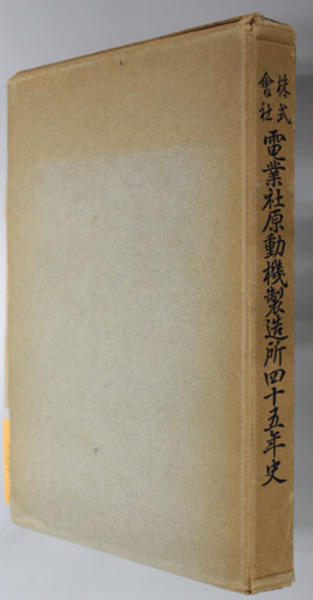 株式會社
電業社原動機製造所四十五年史